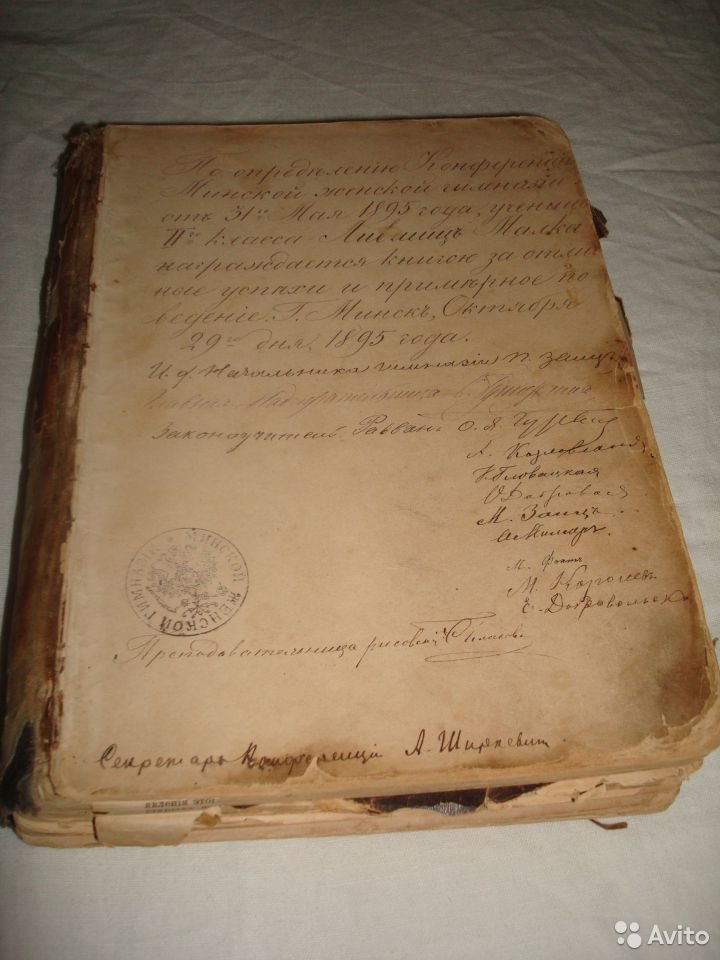 По опредѣленію Конференціи
Минской женской гимназіи
отъ 31го Мая 1895 года, ученица
IIго класса Лившицъ Малка
награждается книгою за отлич
ные успѣхи и примѣрное по
веденіе. Г. Минскъ, Октября
29го дня, 1895 года.
И. ф. Начальника гимназіи П. Заицъ
Законоучитель Раввинъ О. Я. Гурвичъ
А. Козловская
О. Добровая
М. Заицъ
М. Фохтъ
М. Королевъ
Е. Добровольск
МИНСКОЙ ЖЕНСКОЙ ГИМНАЗІИ
Преподавательница рисованія
Секретарь Конференціи А. Ширкевич
ЯВЛЕНІЯ ЭТОГ
Avito